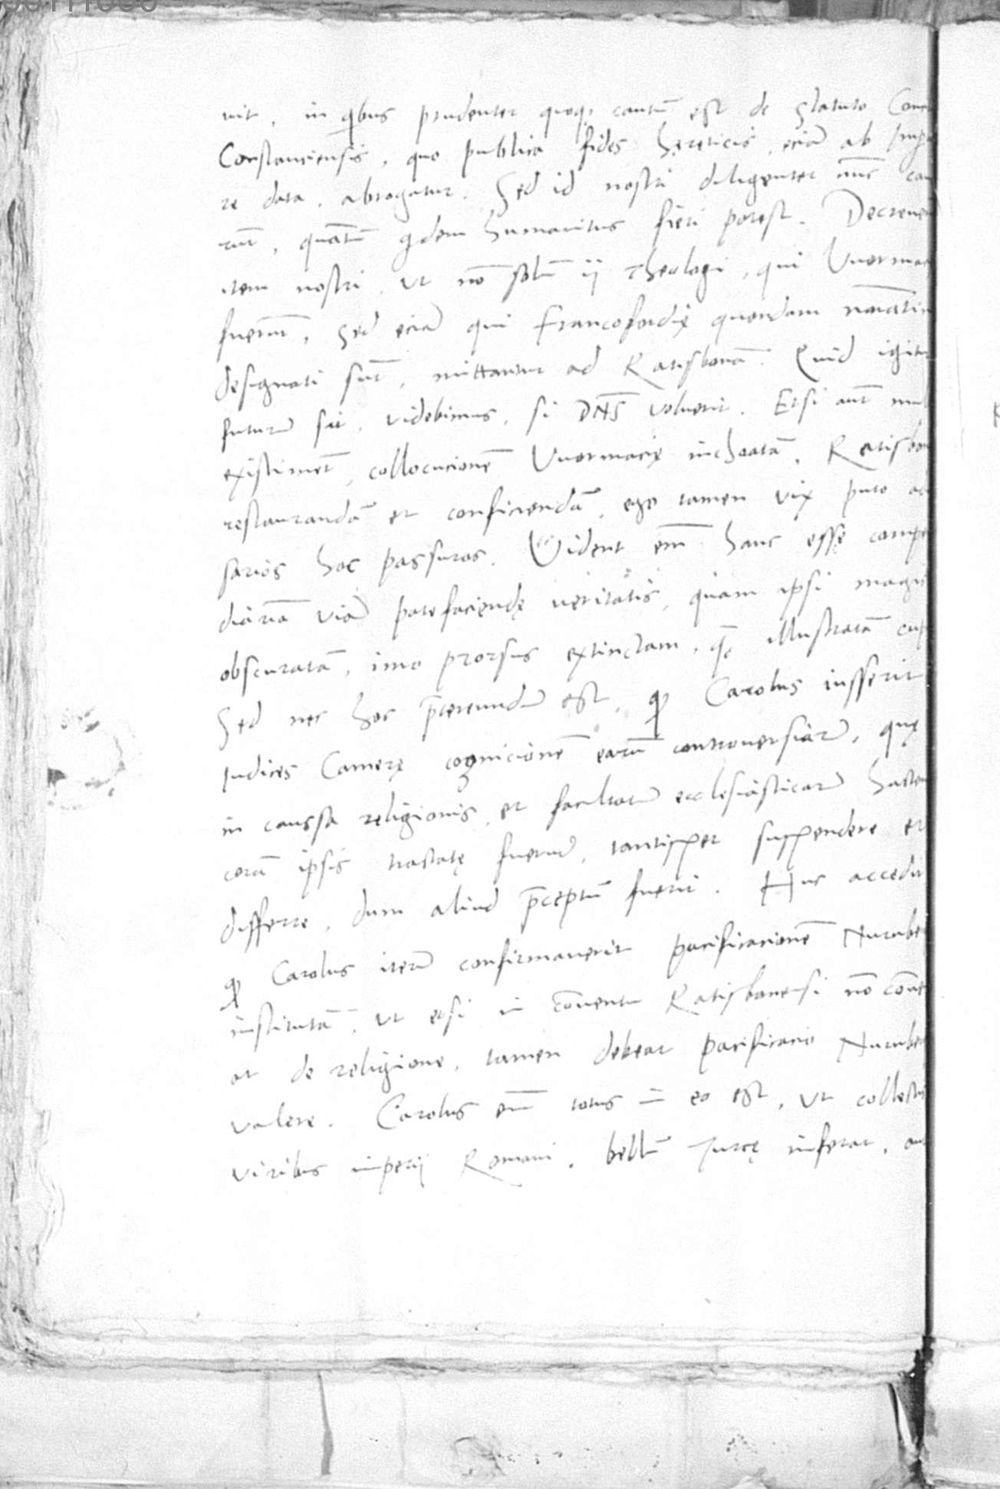 uit, in qbus prudenter quoq; cautū est de statuto Con
Constanciensis, quo publica fides hęreticis, eciā ab Imp
re data, abrogatur. Sed id nostri diligenter nūc cau
rūt, quātū qdem humanitus fieri potest. Decreuer
item nostri, ut nō solū ij Theologi, qui Vuormac
fuerūt, sed eciā qui Francofordię quondam nōīatim
designati sūt, mittantur ad Ratisbonā. Quid igitur
futurū sit, videbimus, si DNS voluerit. Etsi aūt mul
existimēt, collocucionē Vuormacię inchoatā, Ratisbon
restaurandā et conficiendā, ego tamen vix puto ad
sarios hoc passuros. Vident em̄ hanc esse compe
diariā viā patefaciendę veritatis, quam ipsi magis
obscuratā, imo prorsus extinctam, q̄ illustratā cup
Sed nec hoc p̄tereundū est, qđ Carolus iusserit
Iudices Camerę cognicionē earū controuersiarū, quę
in caussa religionis, et facultatū ecclesiasticarū hacten
corā ipsis tractatę fuerūt, tantisper suspendere et
differre, dum aliud p̄ceptū fuerit. Huc accedit
qđ Carolus iterū confirmauerit pacificacionē Nurnbe
institutā, ut etsi in cōuentu Ratisbonensi nō cōue
at de religione, tamen debeat pacificacio Nurnber
valere. Carolus em̄ totus in eo est, ut collectis
viribus imperij Romani, bellū Turcę inferat, aut